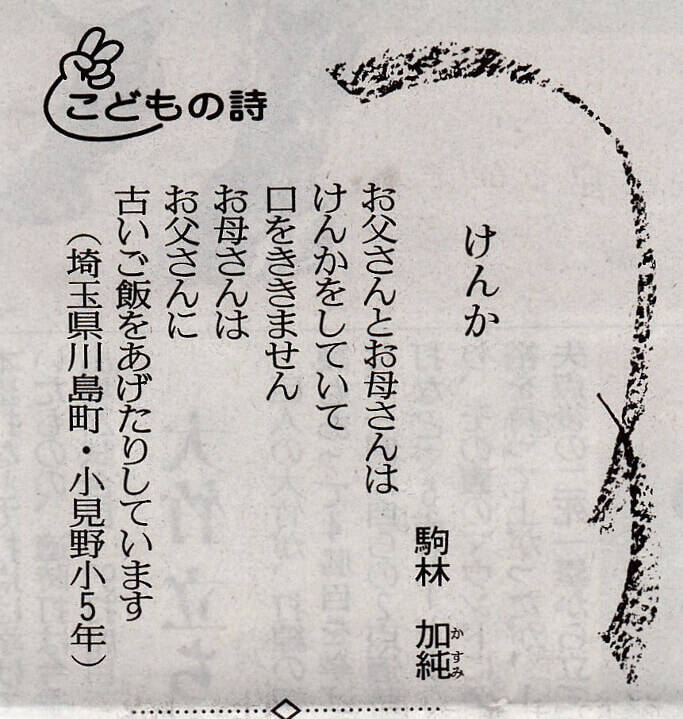 こどもの詩
けんか
駒林 加純
かすみ
お父さんとお母さんは
けんかをしていて
口をききません
お母さんは
お父さんに
古いご飯をあげたりしています
（埼玉県川島町・小見野小5年）